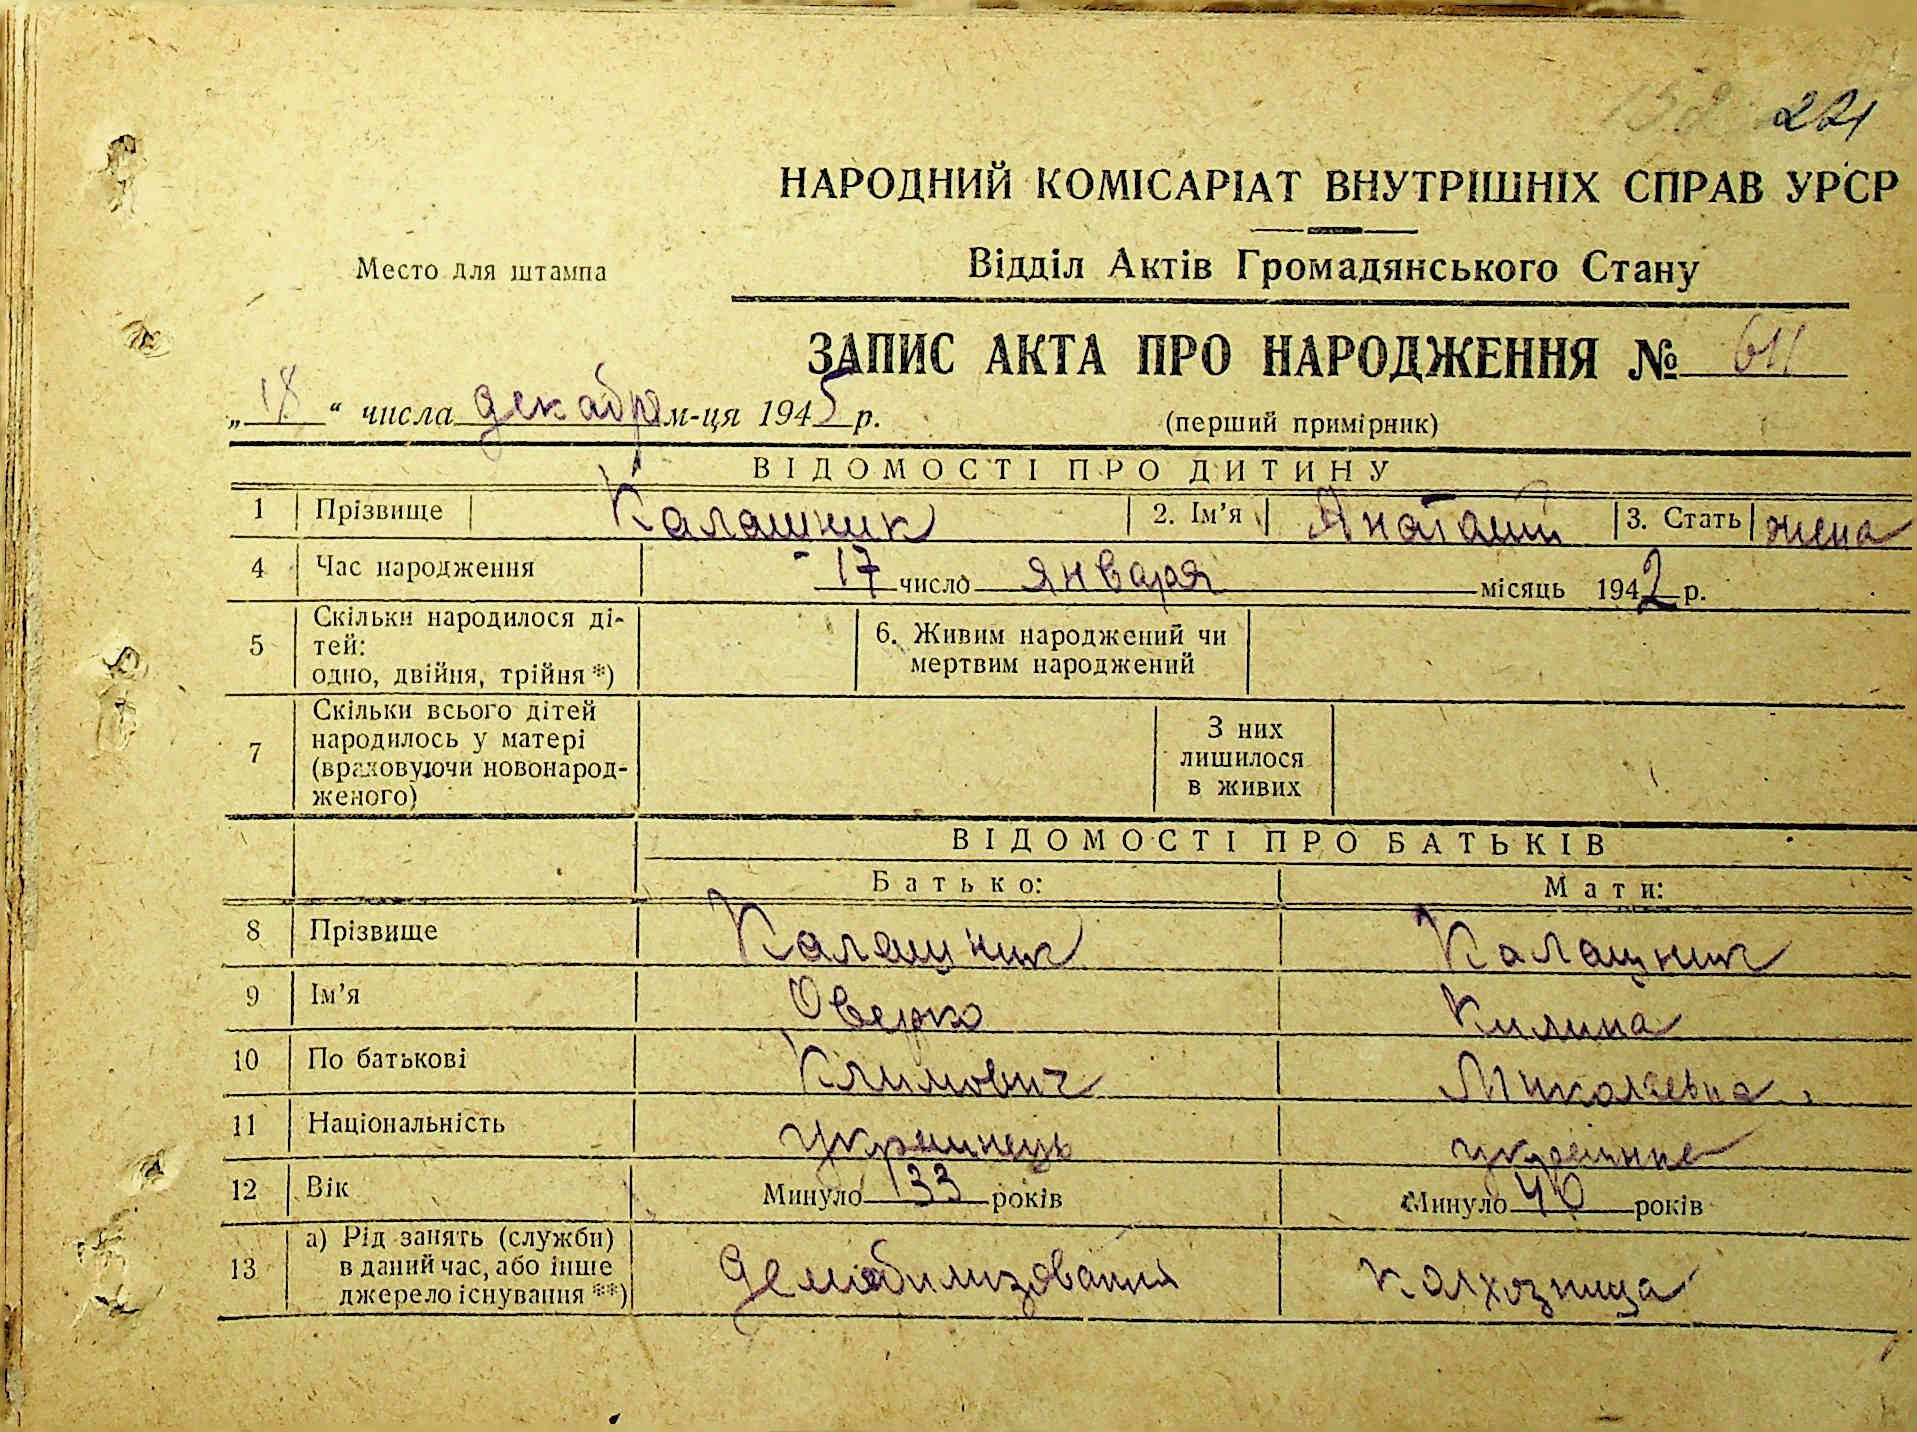 152 221
НАРОДНИЙ КОМІСАРІАТ ВНУТРІШНІХ СПРАВ УРСР
Место для штампа
Відділ Актів Громадянського Стану
ЗАПИС АКТА ПРО НАРОДЖЕННЯ № 611
„18“ числа декабря м-ця 1945 р.
(перший примірник)
ВІДОМОСТІ ПРО ДИТИНУ
1 Прізвище Калашник 2. Ім’я 3. Стать жена
4 Час народження 17 число января місяць 1942 р.
5 Скільки народилося ді-
тей:
одно, двійня, трійня *)
6. Живим народжений чи
мертвим народжений
7 Скільки всього дітей
народилось у матері
(враховуючи новонарод-
женого)
З них
лишилося
в живих
ВІДОМОСТІ ПРО БАТЬКІВ
Батько: Мати:
8 Прізвище Калашник Калашник
9 Ім’я Оверко Килина
10 По батькові Климович Миколаевна
11 Національність українець українка
12 Вік Минуло 33 років Минуло 40 років
13 а) Рід занять (служби)
в даний час, або інше
джерело існування **)
демобилизования колхозница